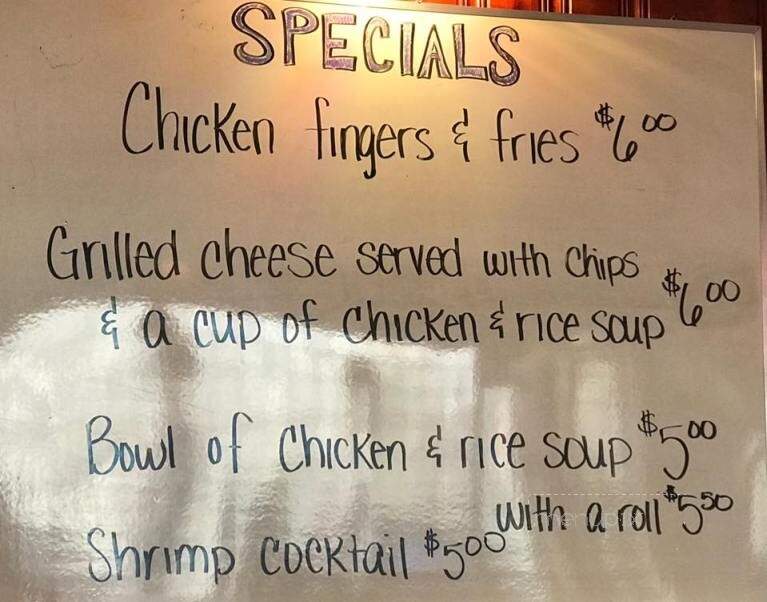 SPECIALS
Chicken fingers & fries $6.00
Grilled cheese served with chips
& a cup of chicken & rice soup $6.00
Bowl of chicken & rice soup $5.00
with a roll $5.50
Shrimp cocktail $5.00